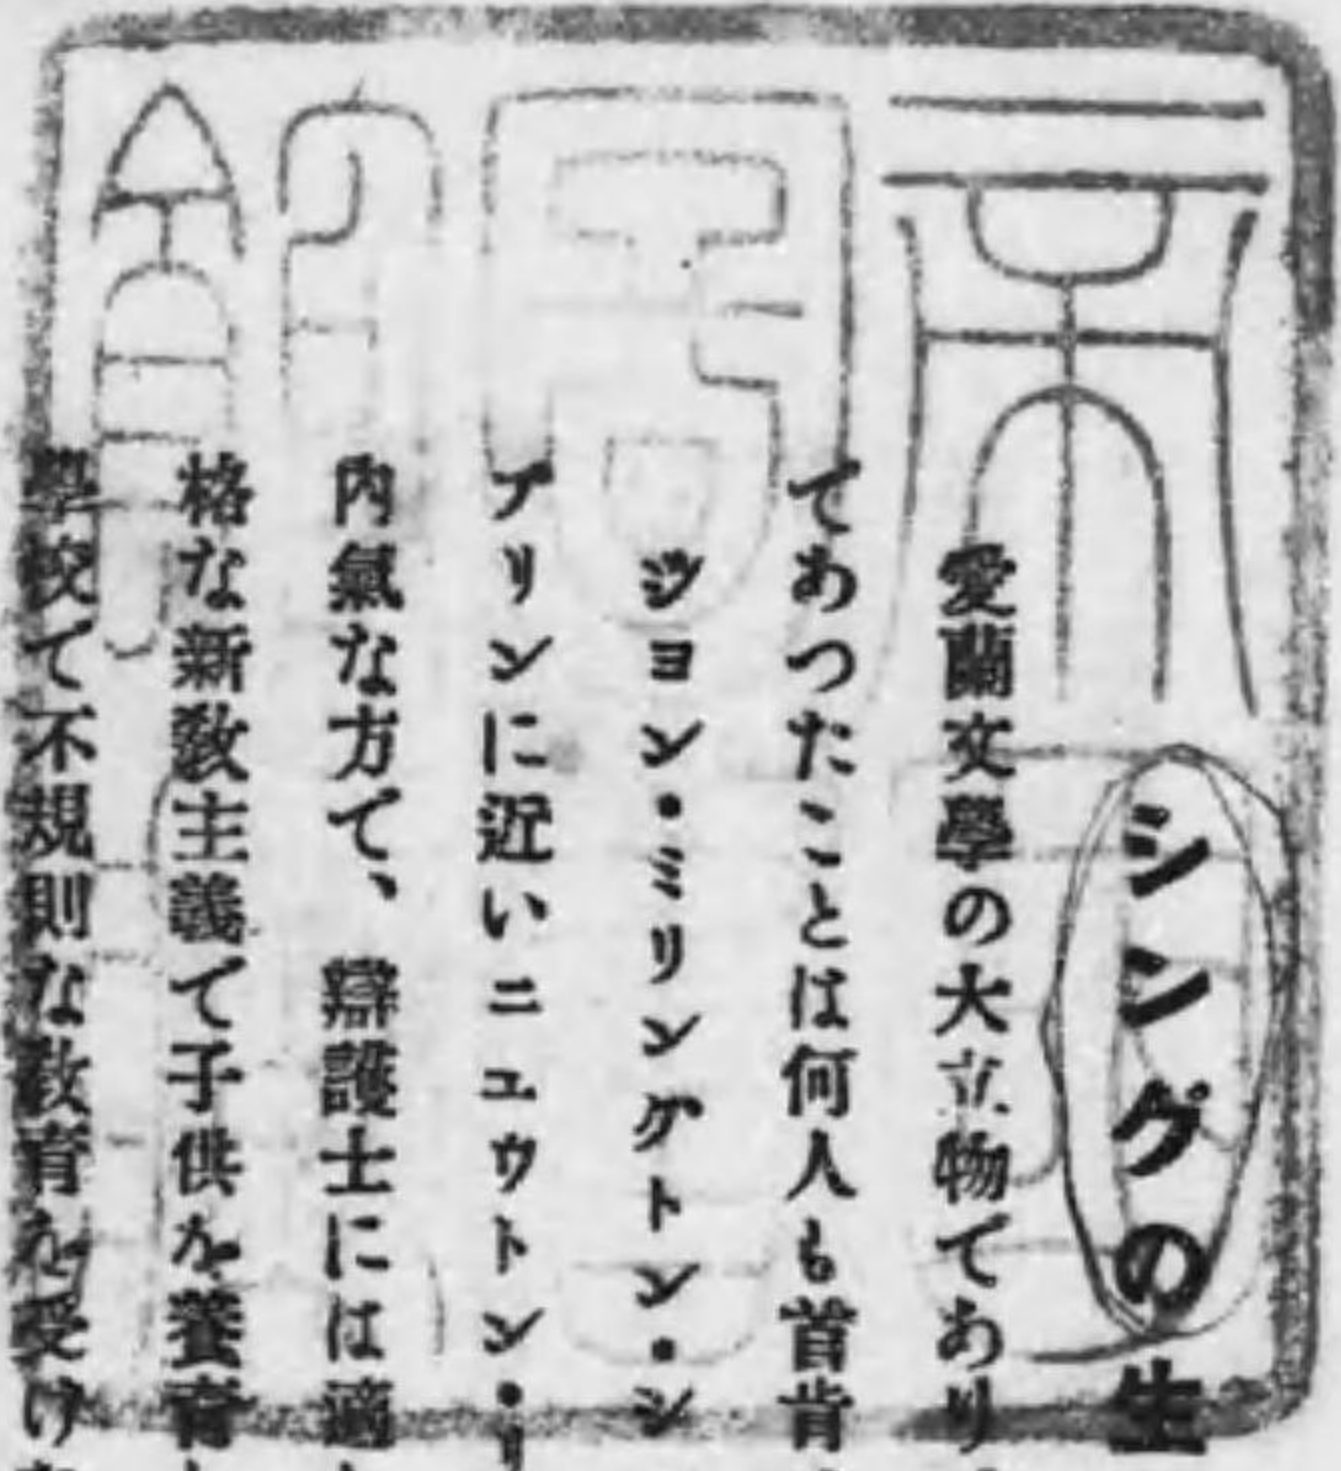 シングの生
愛蘭文學の大立物であり
であつたことは何人も首肯
ジヨン・ミリングトン・シ
ブリンに近いニユウトン・リ
內氣な方で、辯護士には適
格な新敎主義で子供を養育
學校で不規則な敎育を受け